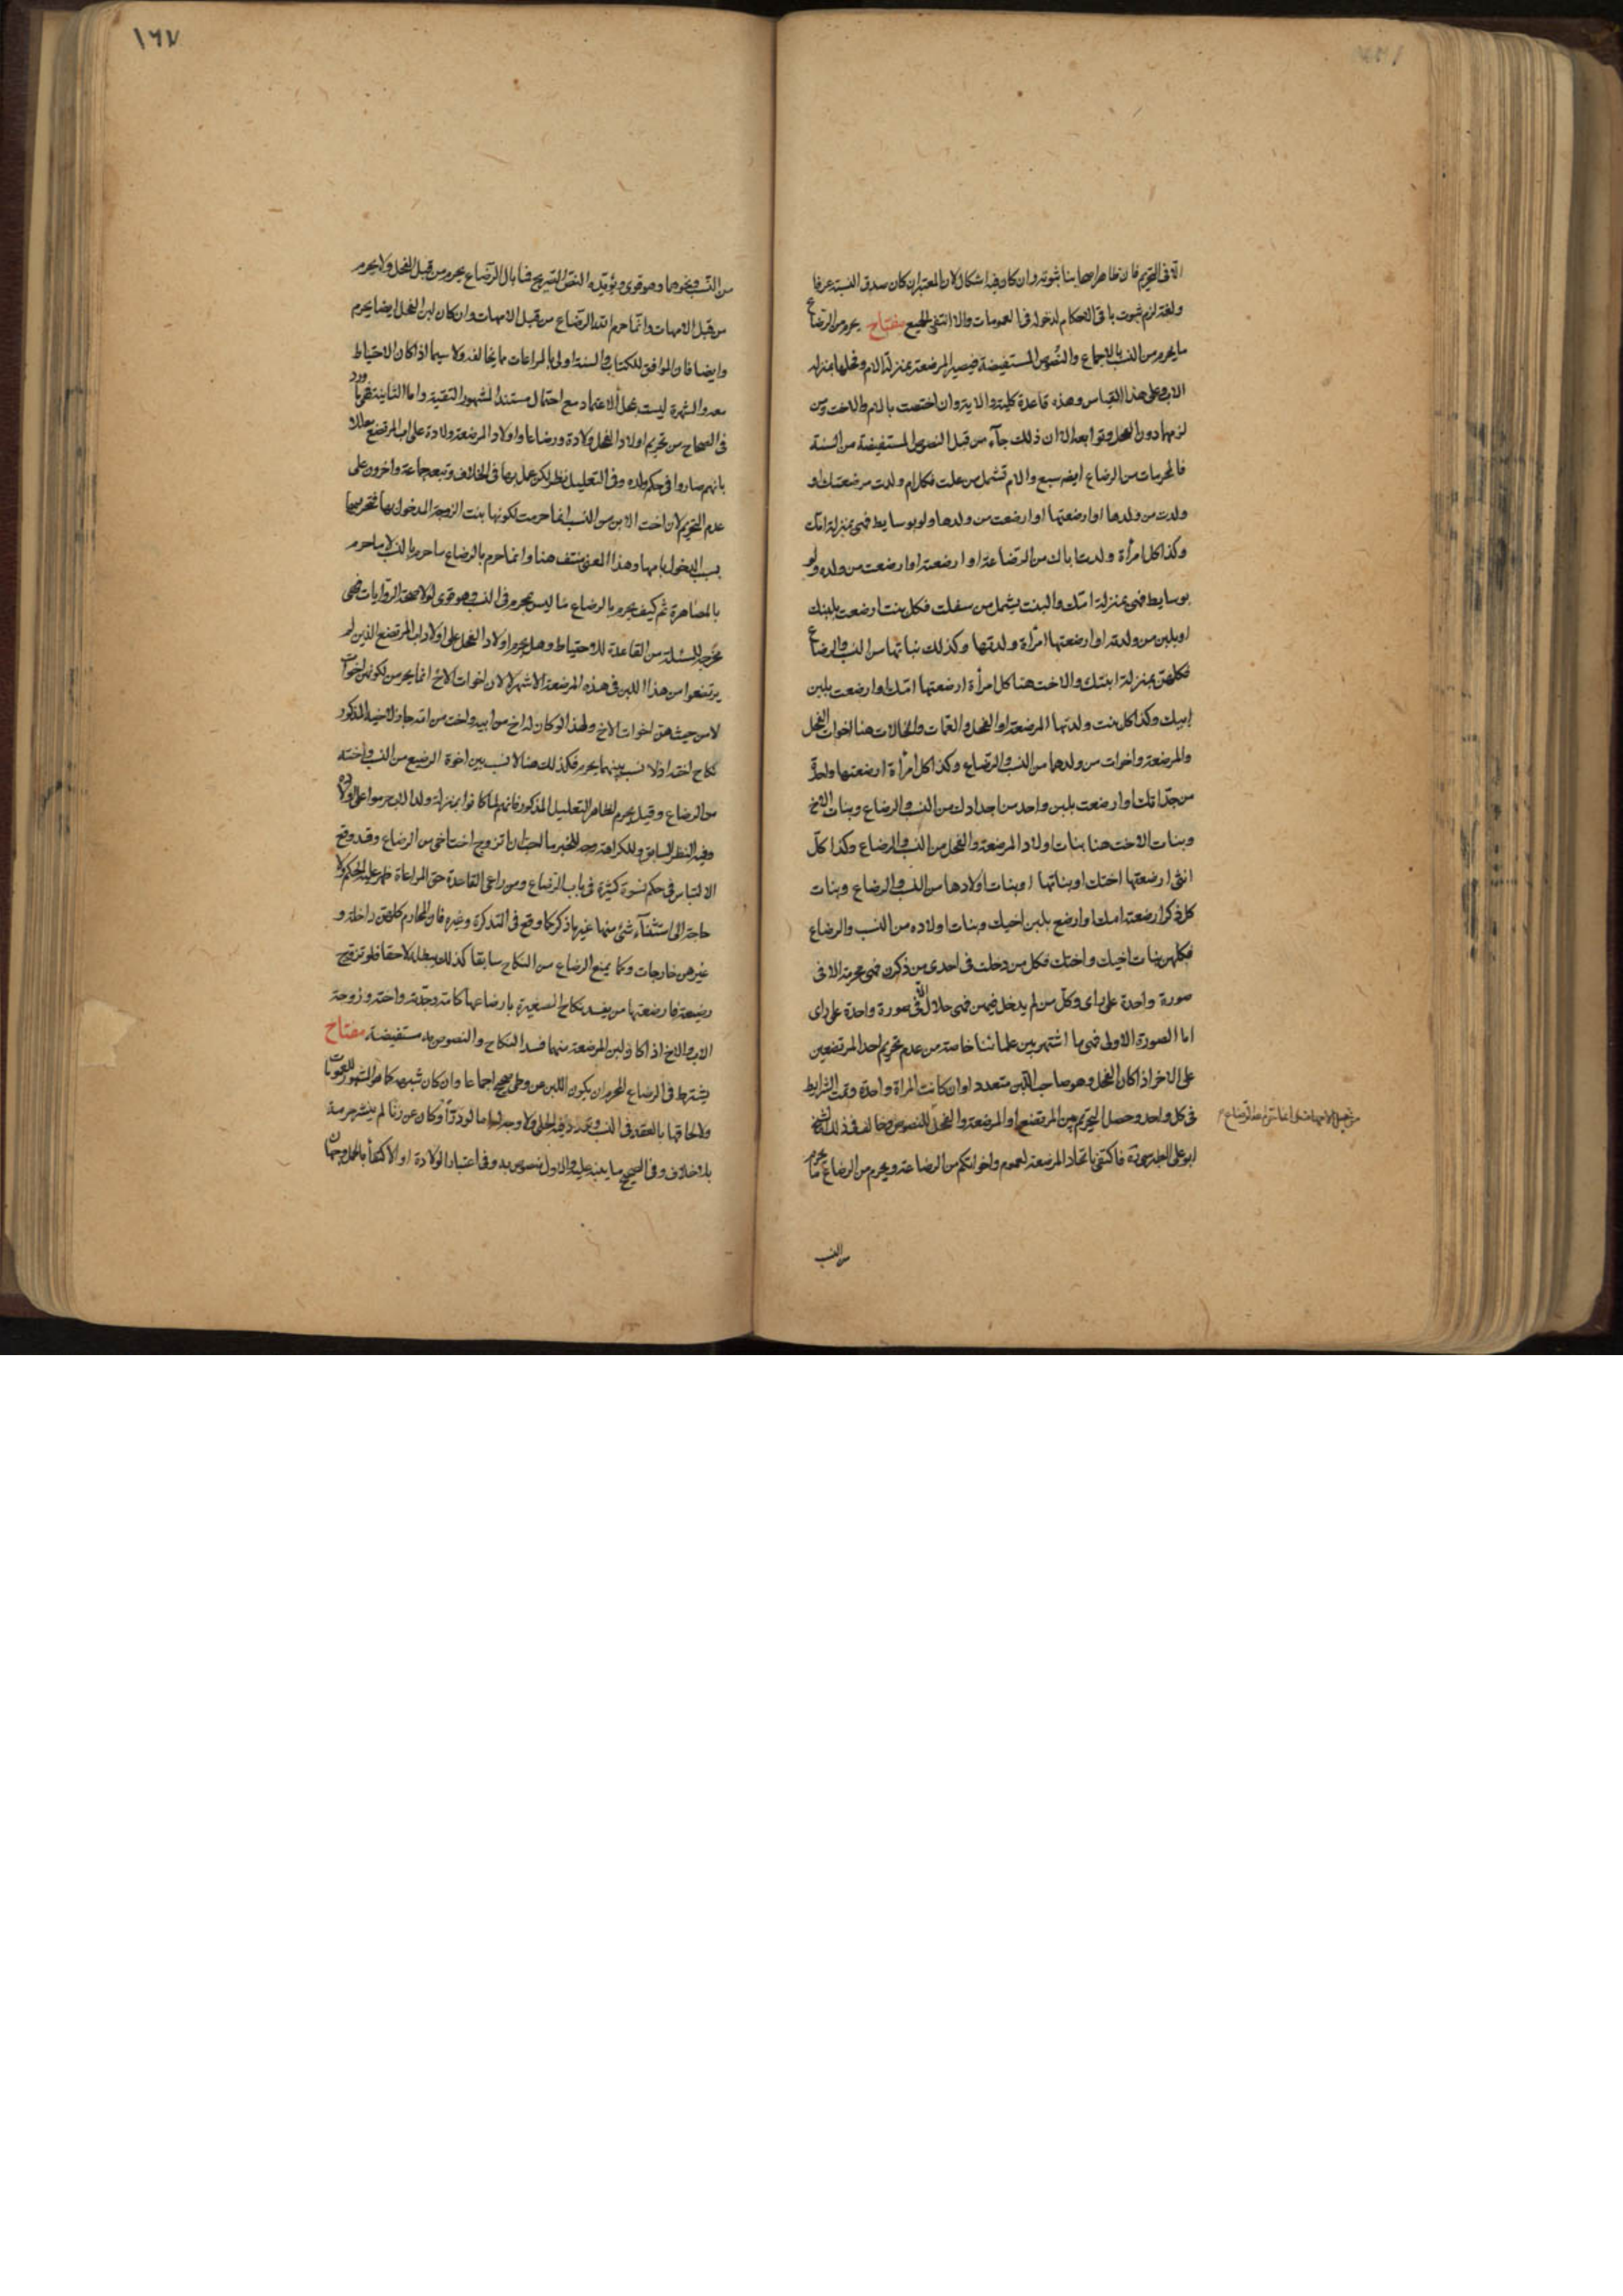 الا في التحريم فان ظاهر اصحابنا ثبوته وان كان فيه اشكال لان المعتبر ان كان صدق النسبة عرفا
ولغة لزم ثبوت باقي الاحكام لدخوله في العمومات والا انتفى الجميع مفتاح يحرم من الرضاع
ما يحرم من النسب بالاجماع والنصوص المستفيضة فيصير المرضعة بمنزلة الام وفحلها بمنزلة
الاب وعلى هذا القياس وهذه قاعدة كلية والاية وان اختصت بالام والاخت ومن
لزمها دون الفحل وتوابعه الا ان ذلك جاء من قبل النصوص المستفيضة من السنة
فالمحرمات من الرضاع ايضه سبع والام تشمل من علت فكل ام ولدت مرضعتك او
ولدت من ولدها او ارضعتها او ارضعت من ولدها ولو بوسايط فهي بمنزلة امك
وكذا كل امرأة ولدت اباك من الرضاعة او ارضعته او ارضعت من ولده ولو
بوسايط فهي بمنزلة امك والبنت يشمل من سفلت فكل بنت ارضعت بلبنك
او بلبن من ولدته او ارضعتها امرأة ولدتها وكذلك بناتها من النسب والرضاع
فكلهن بمنزلة ابنتك والاخت هنا كل امرأة ارضعتها امك او ارضعت بلبن
ابيك وكذا كل بنت ولدتها المرضعة او الفحل والعمات والخالات هنا اخوات الفحل
والمرضعة واخوات من ولدهما من النسب والرضاع وكذا كل امرأة ارضعتها واحدة
من جداتك او ارضعت بلبن واحد من اجدادك من النسب والرضاع وبنات الاخ
وبنات الاخت هنا بنات اولاد المرضعة والفحل من النسب والرضاع وكذا كل
انثى ارضعتها اختك او بناتها او بنات اولادها من النسب والرضاع وبنات
كل ذكر ارضعته امك او ارضع بلبن اخيك وبنات اولاده من النسب والرضاع
فكلهن بنات اخيك واختك فكل من دخلت في احدى من ذكرن فهي محرمة الا في
صورة واحدة على راى وكل من لم يدخل فيهن فهي حلال الا في صورة واحدة على راى
اما الصورة الاولى فهي ما اشتهر بين علمائنا خاصة من عدم تحريم احد المرتضعين
على الاخر اذا كان الفحل وهو صاحب اللبن متعددا وان كانت المراة واحدة وتمت الشرايط
في كل واحد وحصل التحريم بين المرتضع والمرضعة والفحل للنصوص وخالف في ذلك الشيخ
ابو على الطبرسي ره فاكتفى باتحاد المرضعة لعموم واخواتكم من الرضاعة ويحرم من الرضاع ما يحرم
من النسب
١٦٧
من النسب ونحوهما وهو قوى ويؤيده النص الصريح فما بال الرضاع يحرم من قبل الفحل ولا يحرم
من قبل الامهات وانما حرم الله الرضاع من قبل الامهات وان كان لبن الفحل ايضا يحرم
وايضا فان الموافق للكتاب والسنة اولى بالمراعات مما يخالفه ولا سيما اذا كان الاحتياط
معه والشهرة ليست محل الاعتماد مع احتمال مستند المشهور التقية واما الثانية فهي ما ورد
في الصحاح من تحريم اولاد الفحل ولادة ورضاعا واولاد المرضعة ولادة على اب المرتضع معللا
بانهم صاروا في حكم ولده وفي التعليل نظر لكن عمل بها في الخلاف وتبعه جماعة واخرون على
عدم التحريم لان اخت الابن من النسب انما حرمت لكونها بنت الزوجة المدخول بها فتحريمها
بسبب الدخول بامها وهذا المعنى منتف هنا وانما حرم بالرضاع ما حرم بالنسب لا ما حرم
بالمصاهرة ثم كيف يحرم بالرضاع ما ليس يحرم في النسب وهو قوى لولا صحة الروايات فهي
مخرجة للمسئلة من القاعدة للاحتياط وهل يحرم اولاد الفحل على اولاد اب المرتضع الذين لم
يرتضعوا من هذا اللبن في هذه المرضعة الاشهر لا لان اخوات الاخ انما يحرمن لكونهن اخوات
لا من حيث هن اخوات الاخ ولهذا لو كان له اخ من ابيه واخت من امه جاز لاخيه المذكور
نكاح اخته اذ لا نسب بينهما يحرم فكذلك هنا لا نسب بين اخوة الرضيع من النسب واخته
من الرضاع وقيل يحرم لظاهر التعليل المذكور فانهم لما كانوا بمنزلة ولد الاب حرموا على اولاده
وفيه النظر السابق وللكراهة وجه للخبر ما احب ان اتزوج اخت اخي من الرضاع وقد وقع
الالتباس في حكم نسوة كثيرة في باب الرضاع ومن راعى القاعدة حق المراعاة ظهر عليه الحكم ولا
حاجة الى استثناء شئ منها غير ما ذكر كما وقع في التذكرة وغيره فان المحارم كلهن داخلة و
غيرهن خارجات وكما يمنع الرضاع من النكاح سابقا كذلك يبطله لاحقا فلو تزوج
رضيعة فارضعتها من يفسد نكاح الصغيرة بارضاعها كامه وجدته واخته وزوجة
الاب والاخ اذا كان لبن المرضعة منهما فسد النكاح والنصوص به مستفيضة مفتاح
يشترط في الرضاع المحرم ان يكون اللبن عن وطى صحيح اجماعا وان كان شبهة كما هو المشهور للعمومات
ولالحاقها بالعقد في النسب وتردد فيه الحلي ولا وجه له اما لو در او كان عن زنا لم ينشر حرمة
بلا خلاف وفي الصحيح ما ينبه عليه والاول نصوص به وفي اعتبار الولادة او الاكتفاء بالحمل وجهان